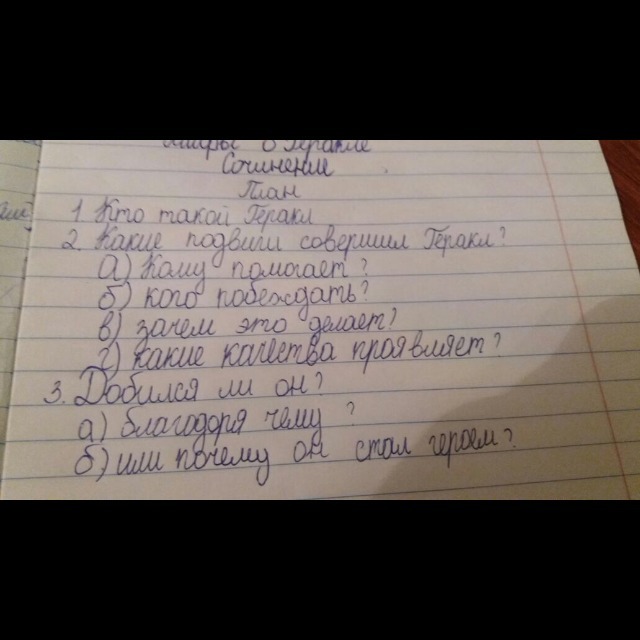 Мифы о Геракле
Сочинение
План
1. Кто такой Геракл
2. Какие подвиги совершил Геракл?
а) Кому помогает?
б) кого побеждать?
в) зачем это делает?
г) какие качества проявляет?
3. Добился ли он?
а) благодоря чему ?
б) или почему он стал героем?